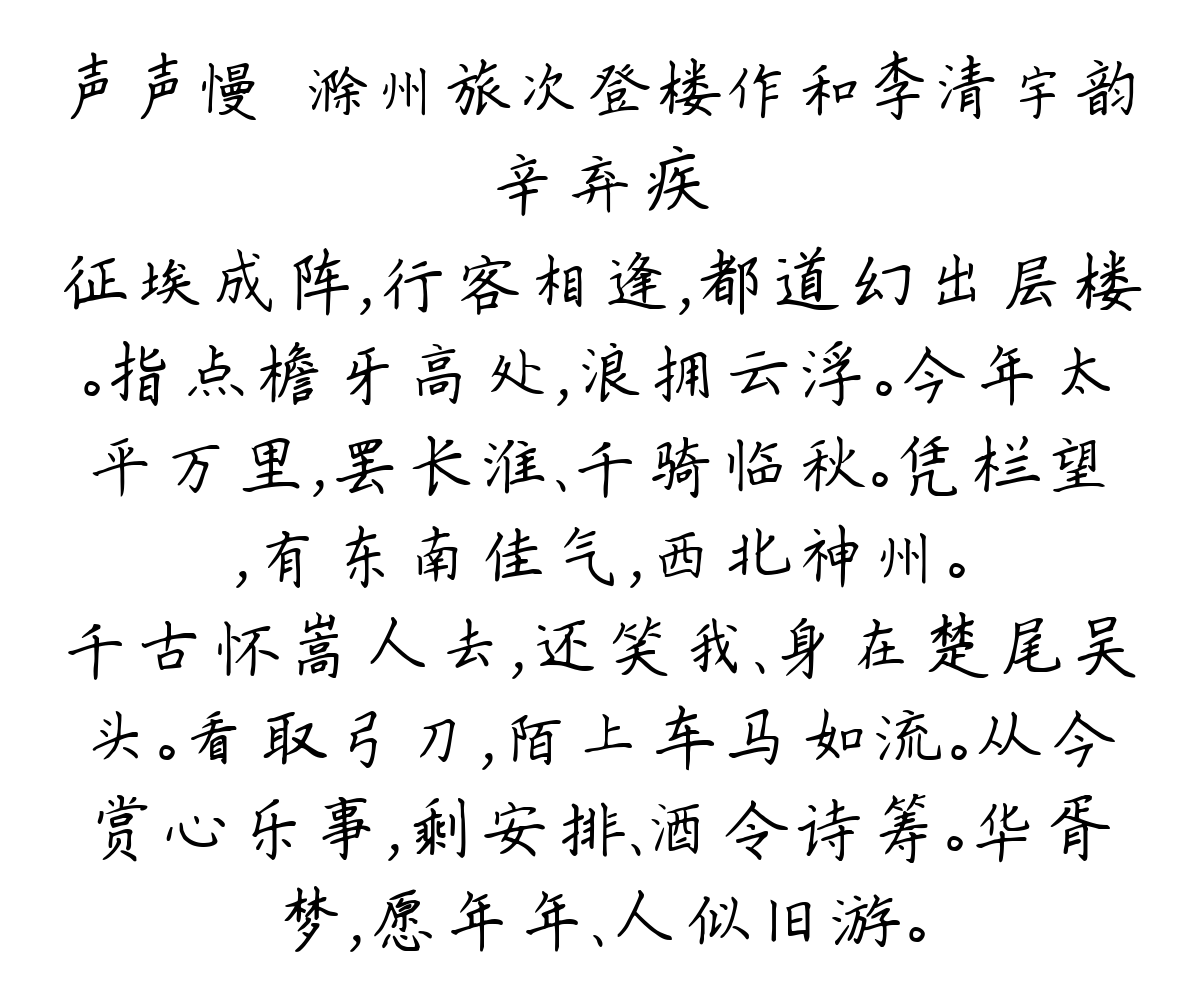 声声慢 滁州旅次登楼作和李清宇韵
辛弃疾
征埃成阵,行客相逢,都道幻出层楼
。指点檐牙高处,浪拥云浮。今年太
平万里,罢长淮、千骑临秋。凭栏望
,有东南佳气,西北神州。
千古怀嵩人去,还笑我、身在楚尾吴
头。看取弓刀,陌上车马如流。从今
赏心乐事,剩安排、酒令诗筹。华胥
梦,愿年年、人似旧游。